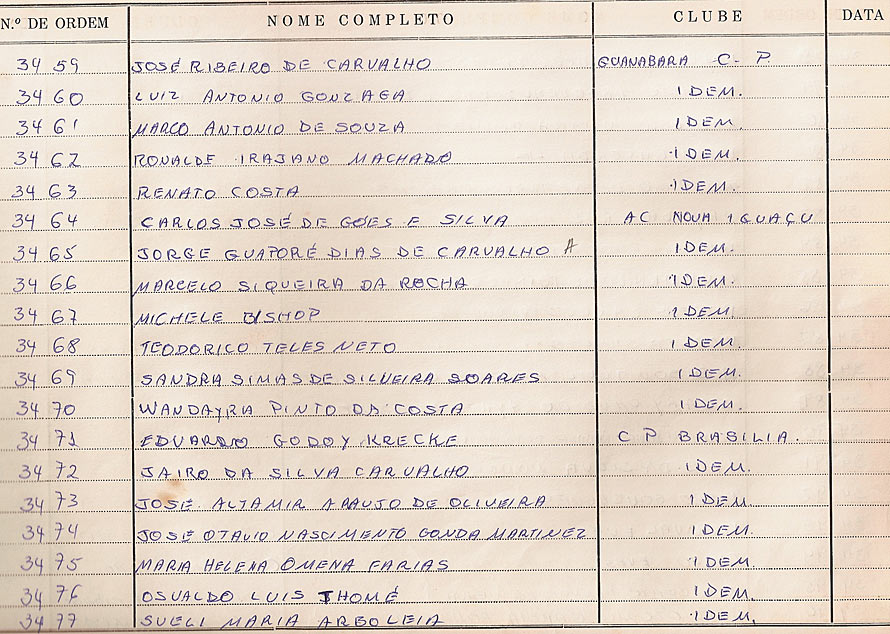 N.º DE ORDEM NOME COMPLETO CLUBE DATA
3459 JOSÉ RIBEIRO DE CARVALHO GUANABARA C. P.
3460 LUIZ ANTONIO GONZAGA IDEM.
3461 MARCO ANTONIO DE SOUZA IDEM.
3462 RONALDE IRAJANO MACHADO IDEM.
3463 RENATO COSTA IDEM.
3464 CARLOS JOSÉ DE GÓES E SILVA AC NOVA IGUAÇU
3465 JORGE GUAPORÉ DIAS DE CARVALHO A IDEM.
3466 MARCELO SIQUEIRA DA ROCHA IDEM.
3467 MICHELE BISHOP IDEM.
3468 TEODORICO TELES NETO IDEM.
3469 SANDRA SIMAS DE SILVEIRA SOARES IDEM.
3470 WANDAYRA PINTO DA COSTA IDEM.
3471 EDUARDO GODOY KRECKE C P BRASILIA.
3472 JAIRO DA SILVA CARVALHO IDEM.
3473 JOSÉ ALTAMIR ARAUJO DE OLIVEIRA IDEM
3474 JOSÉ OTAVIO NASCIMENTO GONDA MARTINEZ IDEM.
3475 MARIA HELENA OMENA FARIAS IDEM.
3476 OSVALDO LUIS THOMÉ IDEM.
3477 SUELI MARIA ARBOLEIA IDEM.